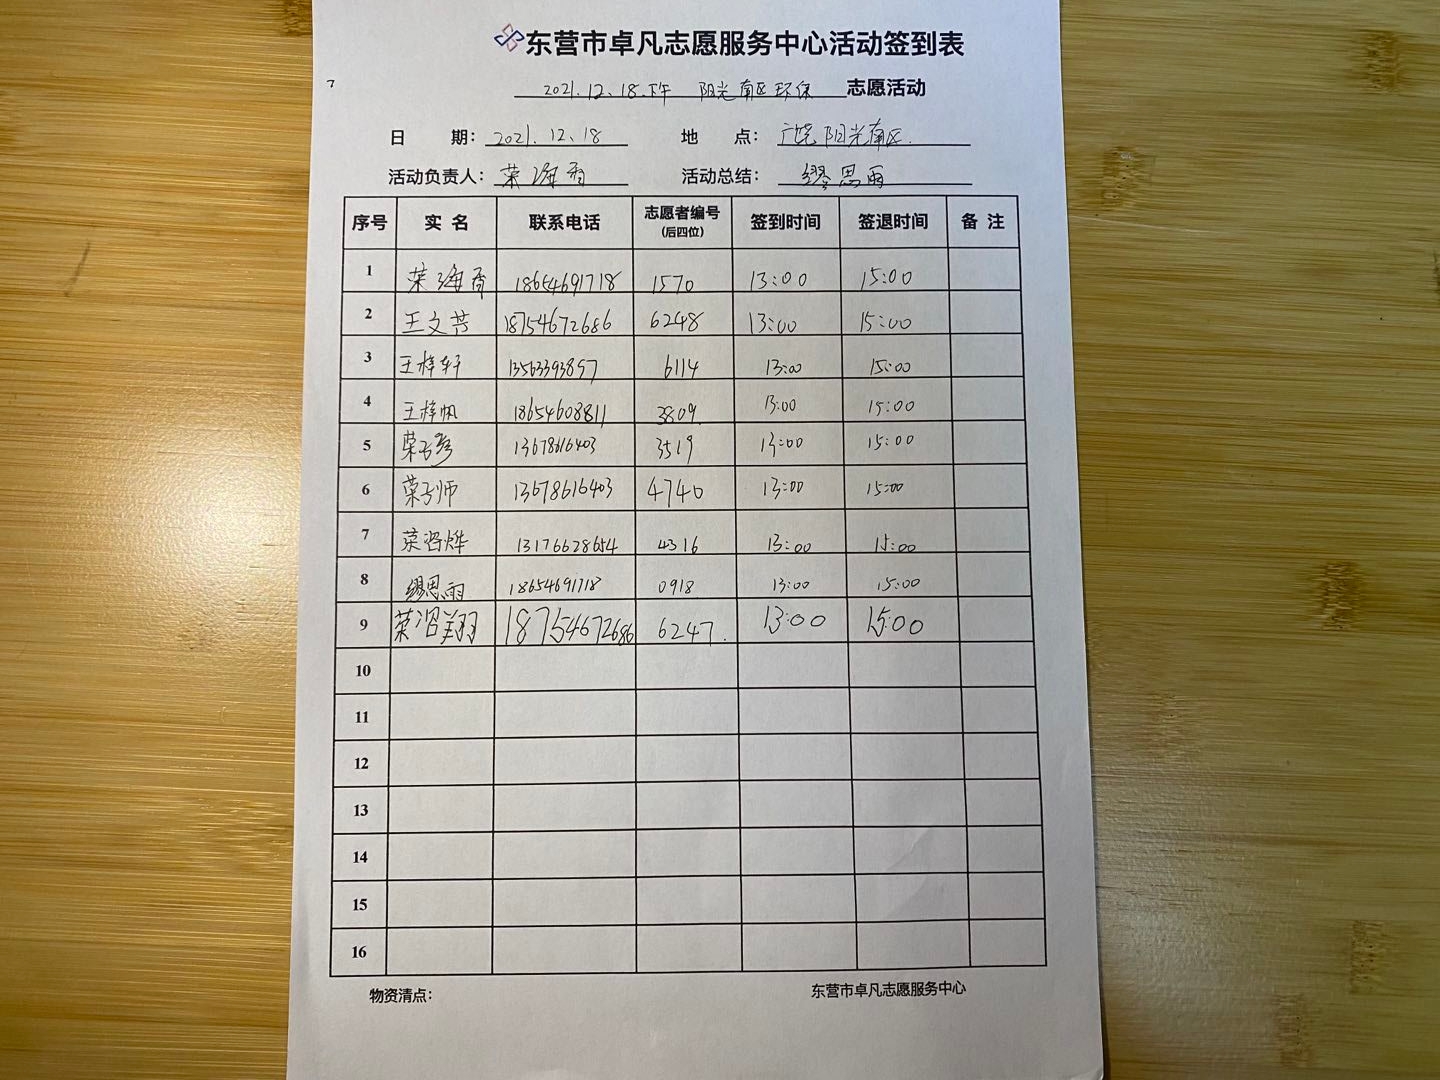 东营市卓凡志愿服务中心活动签到表
2021.12.18.下午 阳光南区环保 志愿活动
日 期: 2021.12.18 地 点: 广饶阳光南区.
活动负责人: 荣海香 活动总结: 缪思雨
序号 实名 联系电话 志愿者编号 (后四位) 签到时间 签退时间 备注
1 荣海香 18654691718 1570 13:00 15:00
2 王文芸 18754672686 6248 13:00 15:00
3 王梓轩 13563393897 6114 13:00 15:00
4 王梓帆 18654608811 3809. 13:00 15:00
5 荣子 13678616403 3519 13:00 15:00
6 荣子师 13678616403 4740 13:00 15:00
7 荣烨 13176628654 4316 13:00 15:00
8 缪思雨 18654691718 0918 13:00 15:00
9 荣翔 18754672686 6247. 13:00 15:00
10
11
12
13
14
15
16
物资清点: 东营市卓凡志愿服务中心